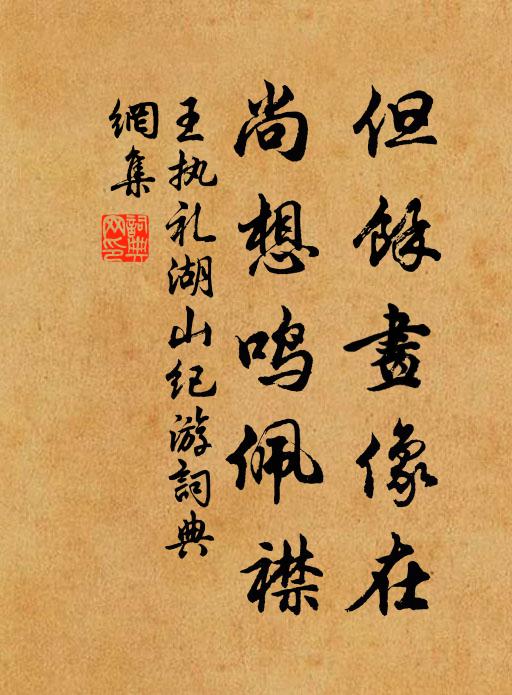 但餘畫像在
尚想鸣佩襟
王执礼湖山纪游詞典
網集
詞典網印